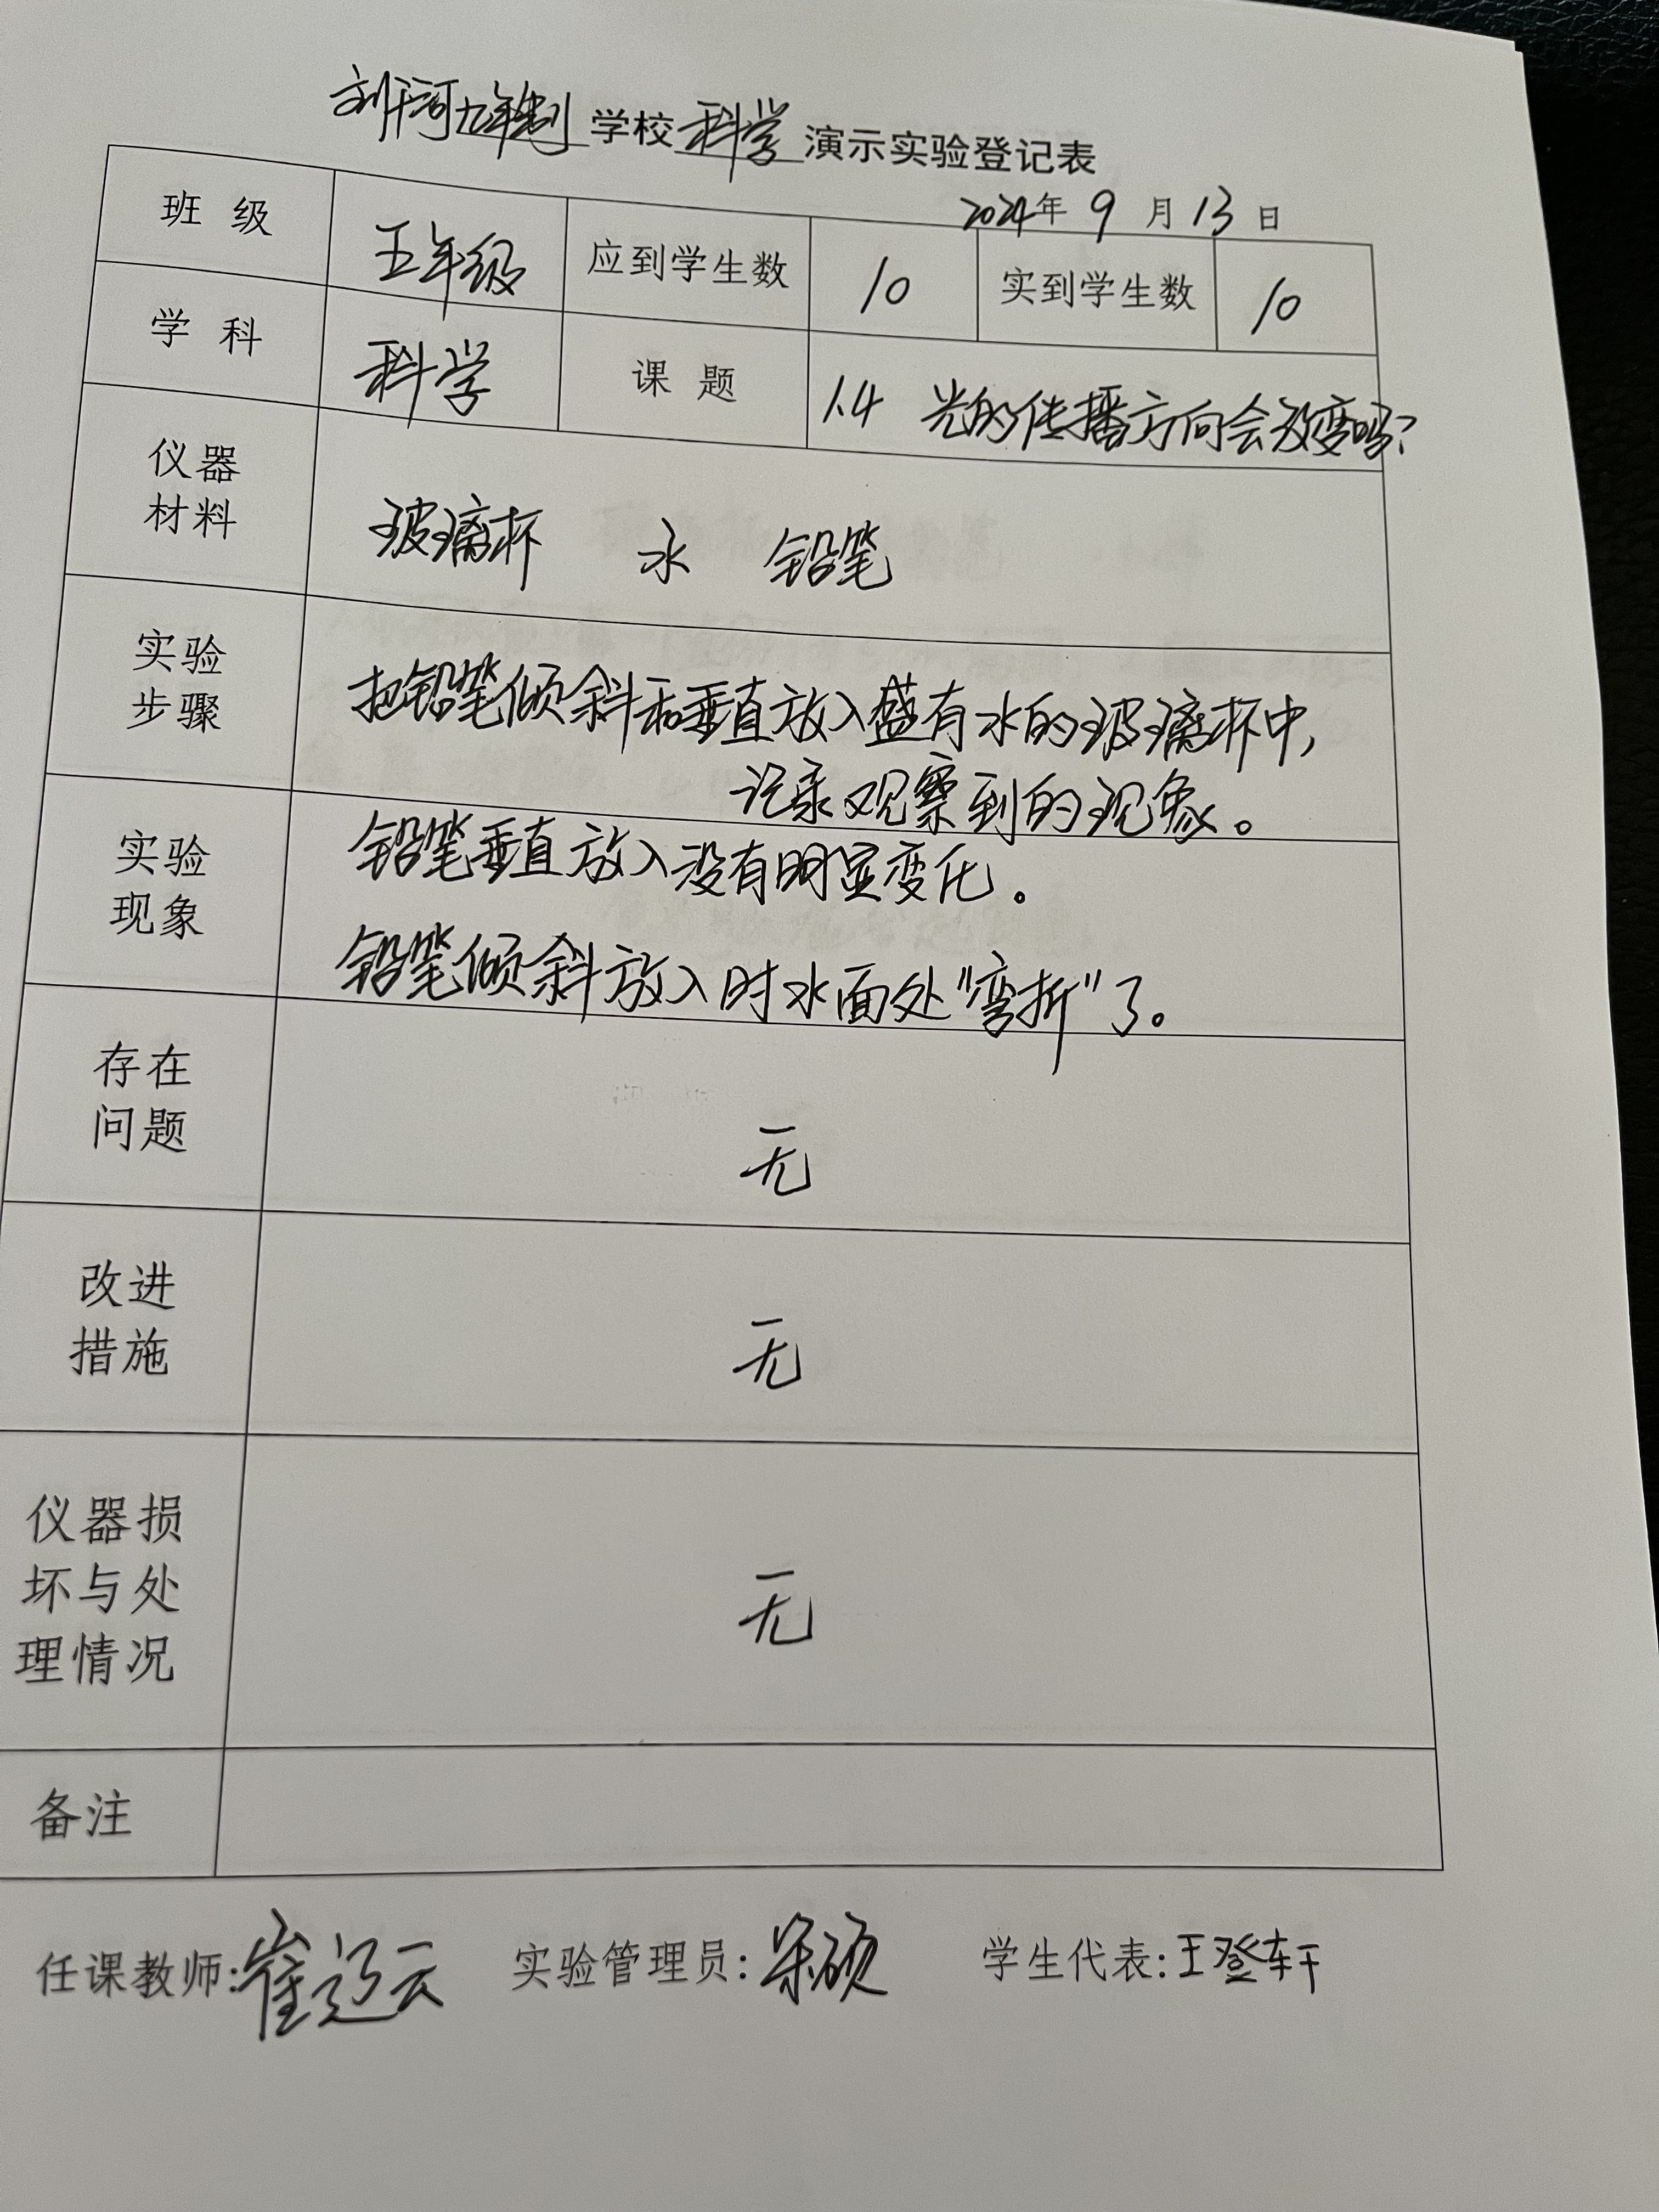 刘干河九年制学校科学演示实验登记表
2024年 9 月 13 日
班 级 五年级 应到学生数 10 实到学生数 10
学 科 科学 课 题 1.4 光的传播方向会改变吗?
仪器
材料
玻璃杯 水 铅笔
实验
步骤
把铅笔倾斜和垂直放入盛有水的玻璃杯中,
记录观察到的现象。
实验
现象
铅笔垂直放入没有明显变化。
铅笔倾斜放入时水面处"弯折"了。
存在
问题
无
改进
措施
无
仪器损
坏与处
理情况
无
备注
任课教师:崔 云 实验管理员: 硕 学生代表:王登轩